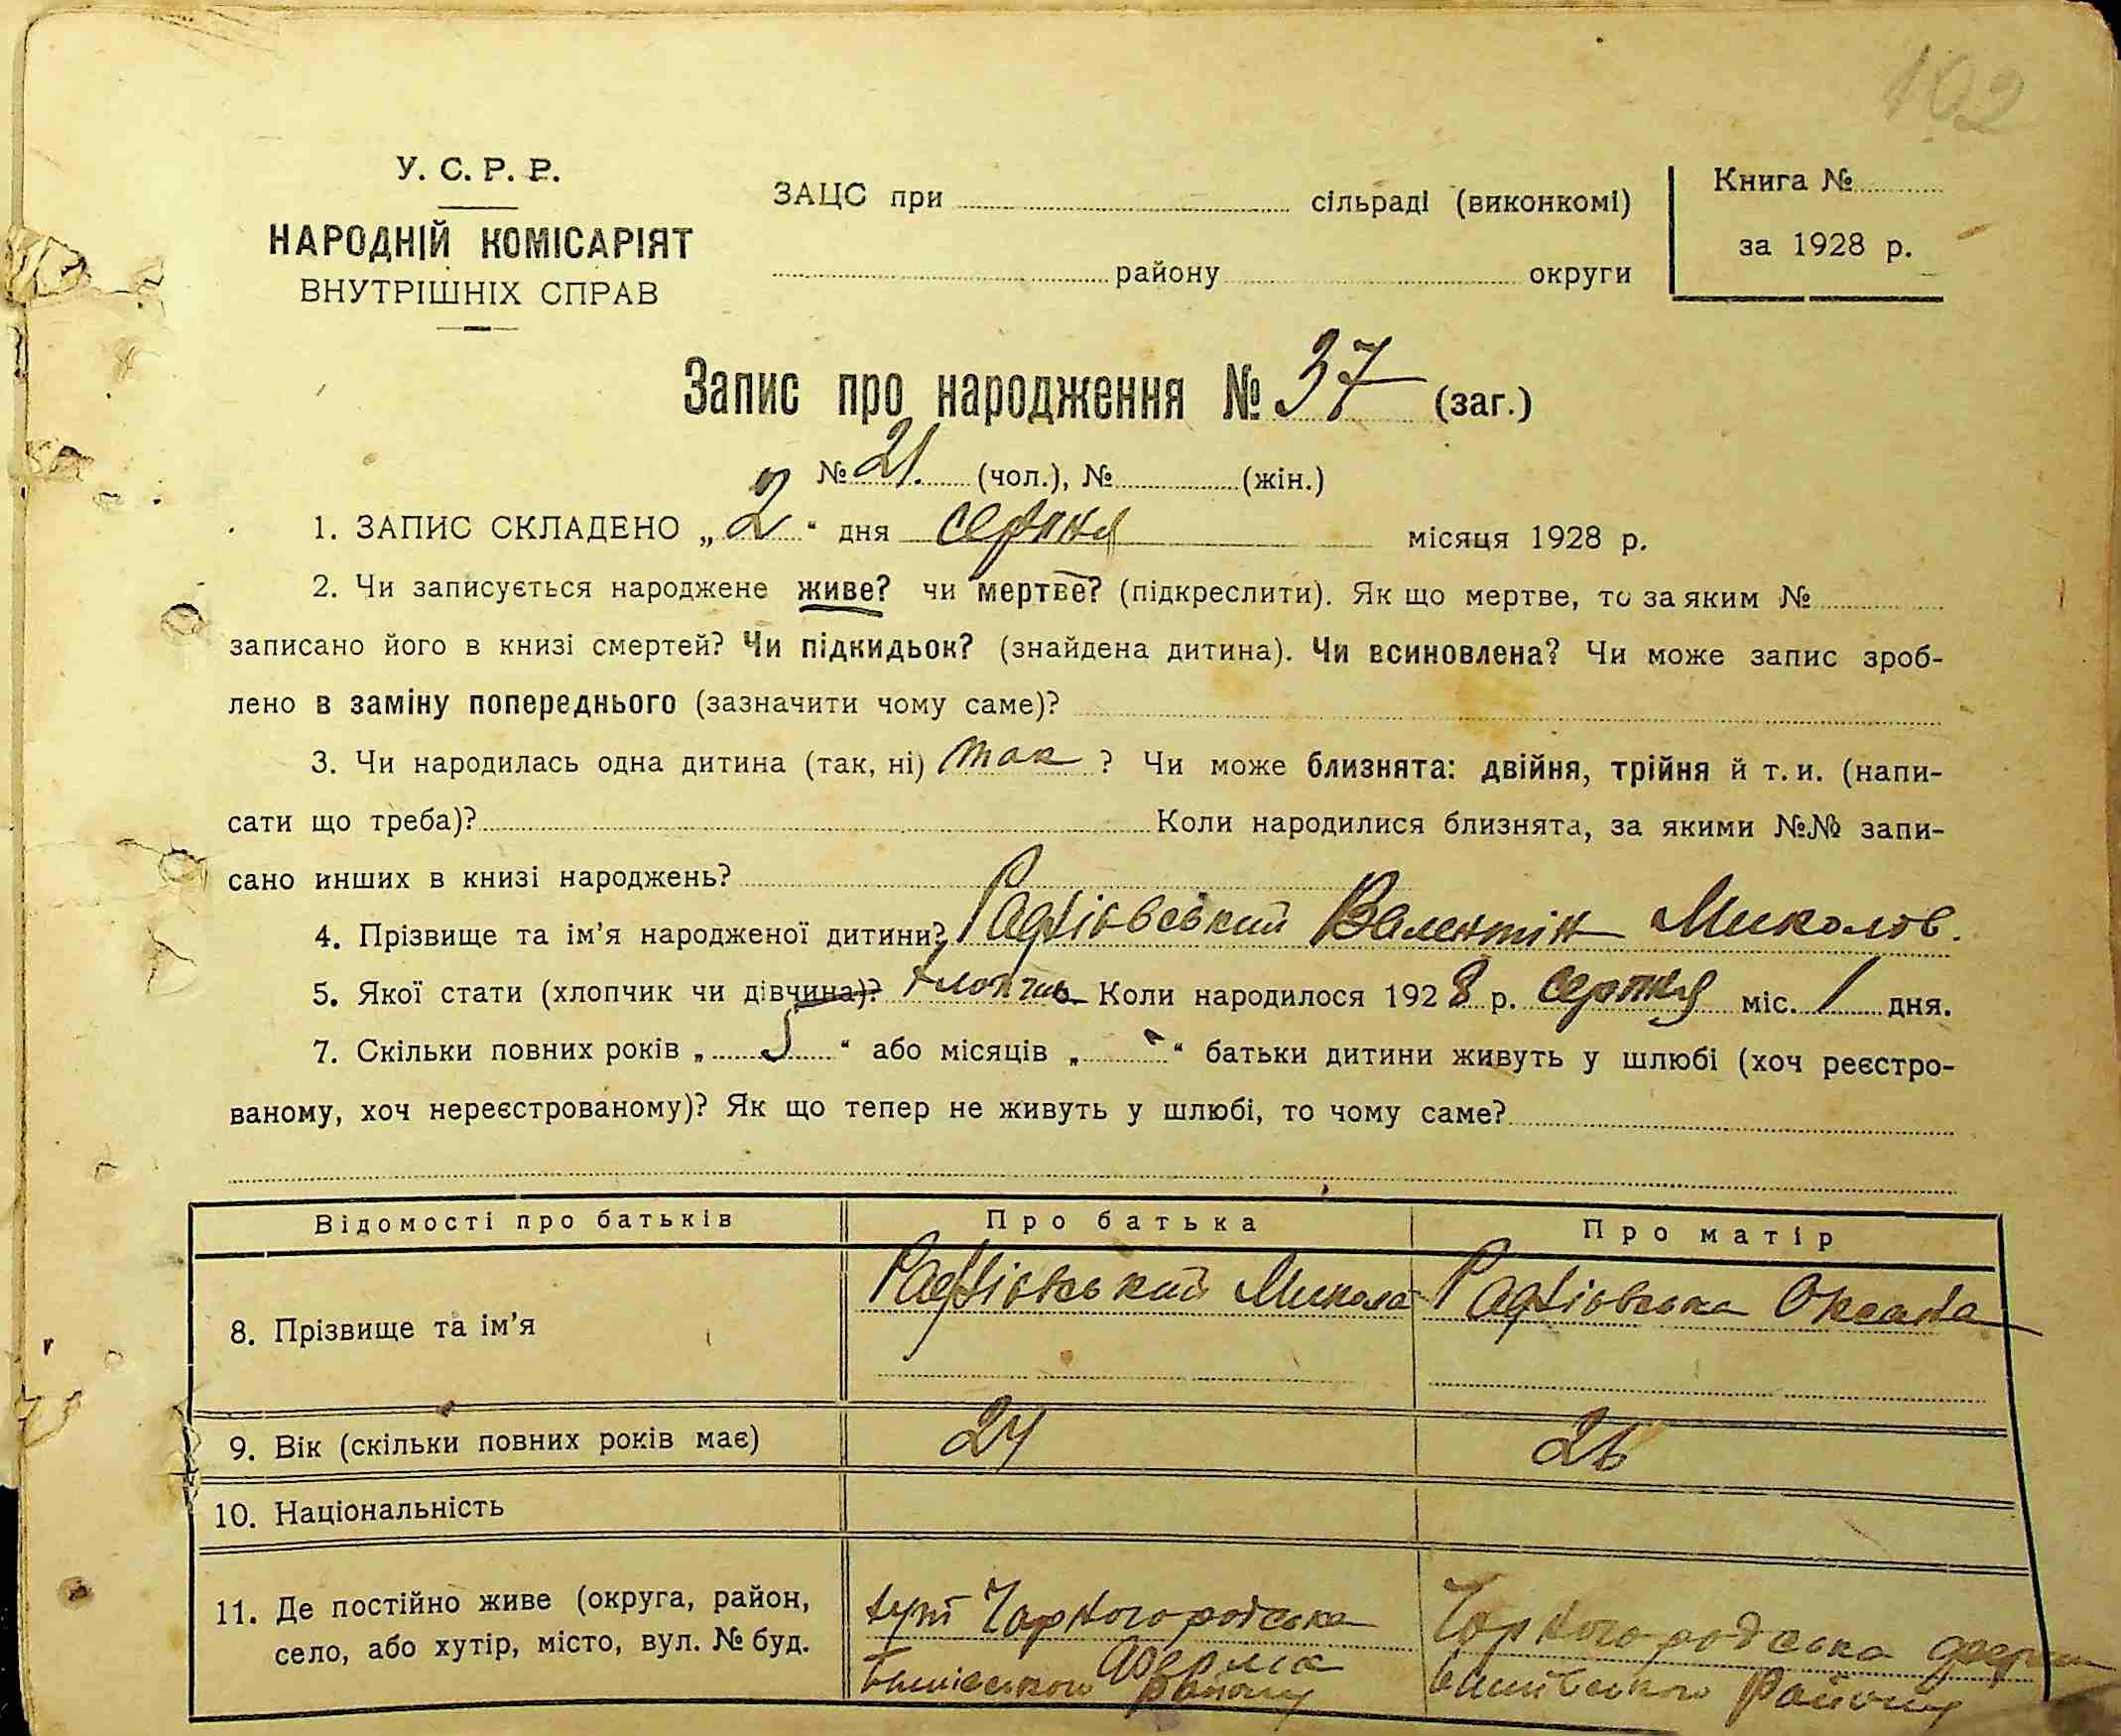 102
У. С. Р. Р.
НАРОДНІЙ КОМІСАРІЯТ
ВНУТРІШНІХ СПРАВ
ЗАЦС при сільраді (виконкомі)
району округи
Книга №
за 1928 р.
Запис про народження № 37 (заг.)
№ 21. (чол.), № (жін.)
1. ЗАПИС СКЛАДЕНО „2“ дня серпня місяця 1928 р.
2. Чи записується народжене живе? чи мертве? (підкреслити). Як що мертве, то за яким №
записано його в книзі смертей? Чи підкидьок? (знайдена дитина). Чи всиновлена? Чи може запис зроб-
лено в заміну попереднього (зазначити чому саме)?
3. Чи народилась одна дитина (так, ні) так ? Чи може близнята: двійня, трійня й т. и. (напи-
сати що треба)? Коли народилися близнята, за якими №№ запи-
сано инших в книзі народжень?
4. Прізвище та ім’я народженої дитини? Валентін Миколов.
5. Якої стати (хлопчик чи дівчина)? хлопчик Коли народилося 1928 р. серпня міс. 1 дня.
7. Скільки повних років „5“ або місяців „ “ батьки дитини живуть у шлюбі (хоч реєстро-
ваному, хоч нереєстрованому)? Як що тепер не живуть у шлюбі, то чому саме?
Відомості про батьків Про батька Про матір
8. Прізвище та ім’я Микола Оксана
9. Вік (скільки повних років має) 24 26
10. Національність
11. Де постійно живе (округа, район,
село, або хутір, місто, вул. № буд.
хут Чорногородська
Ферма
району
Чорногородська ферма
району